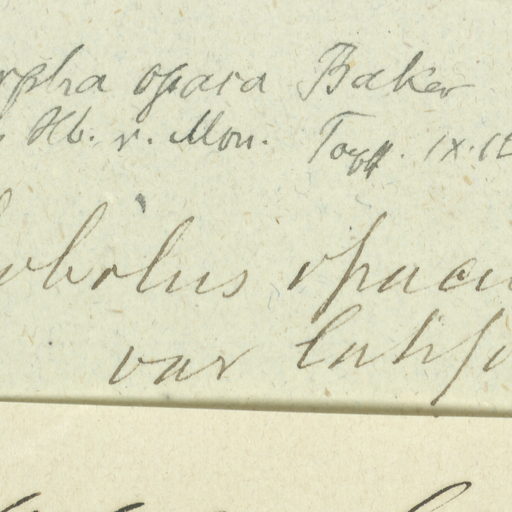 rpha opaca Baker
Hb. v. Mon. Topff. IX. 12
obolus opacu
var latifo